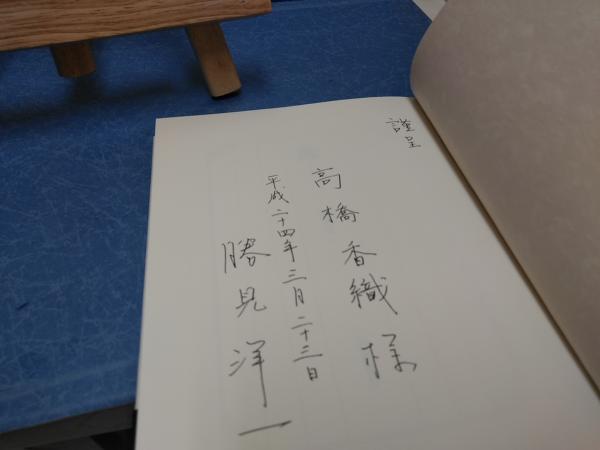 謹呈
高橋香織様
平成二十四年三月二十三日
勝見洋一